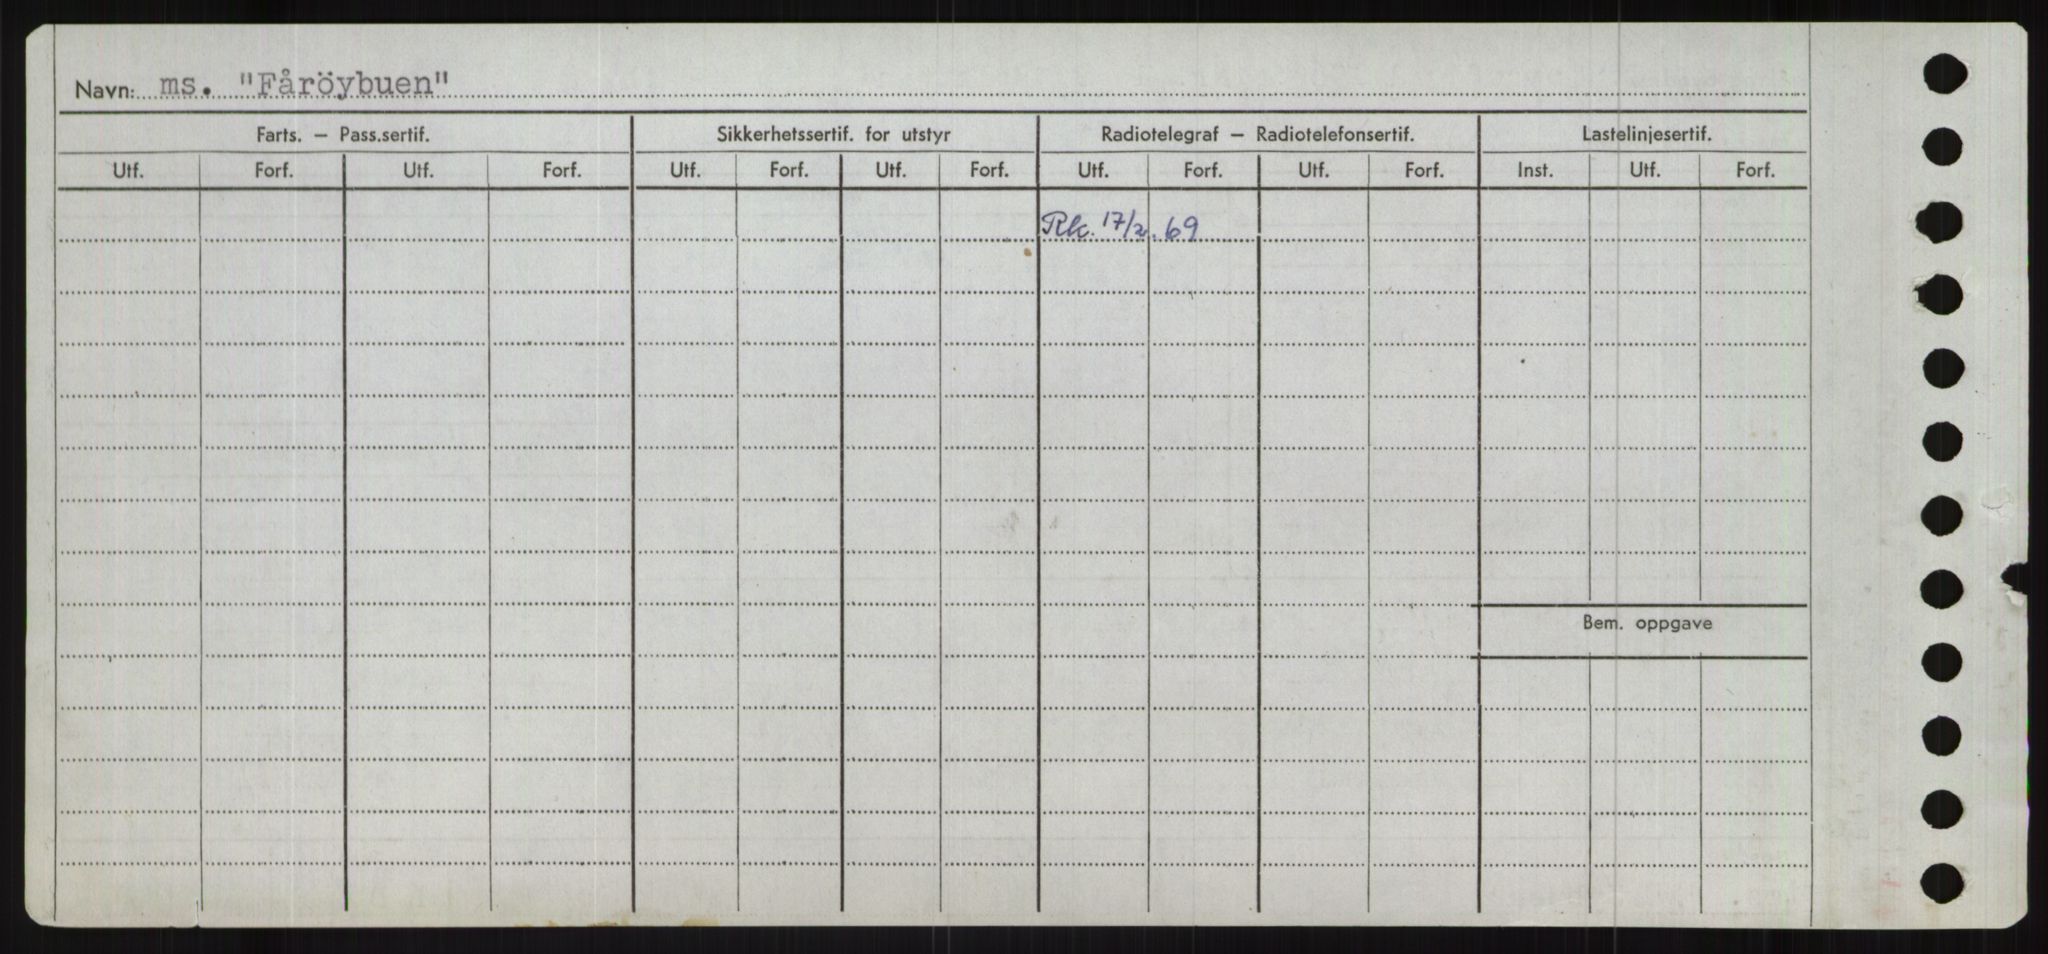 Navn: ms. "Fåröybuen"
Farts. – Pass.sertif. Sikkerhetssertif. for utstyr Radiotelegraf – Radiotelefonsertif. Lastelinjesertif.
Utf. Forf. Utf. Forf. Utf. Forf. Utf. Forf. Utf. Forf. Utf. Forf. Inst. Utf. Forf.
Rk. 17/2. 69
Bem. oppgave